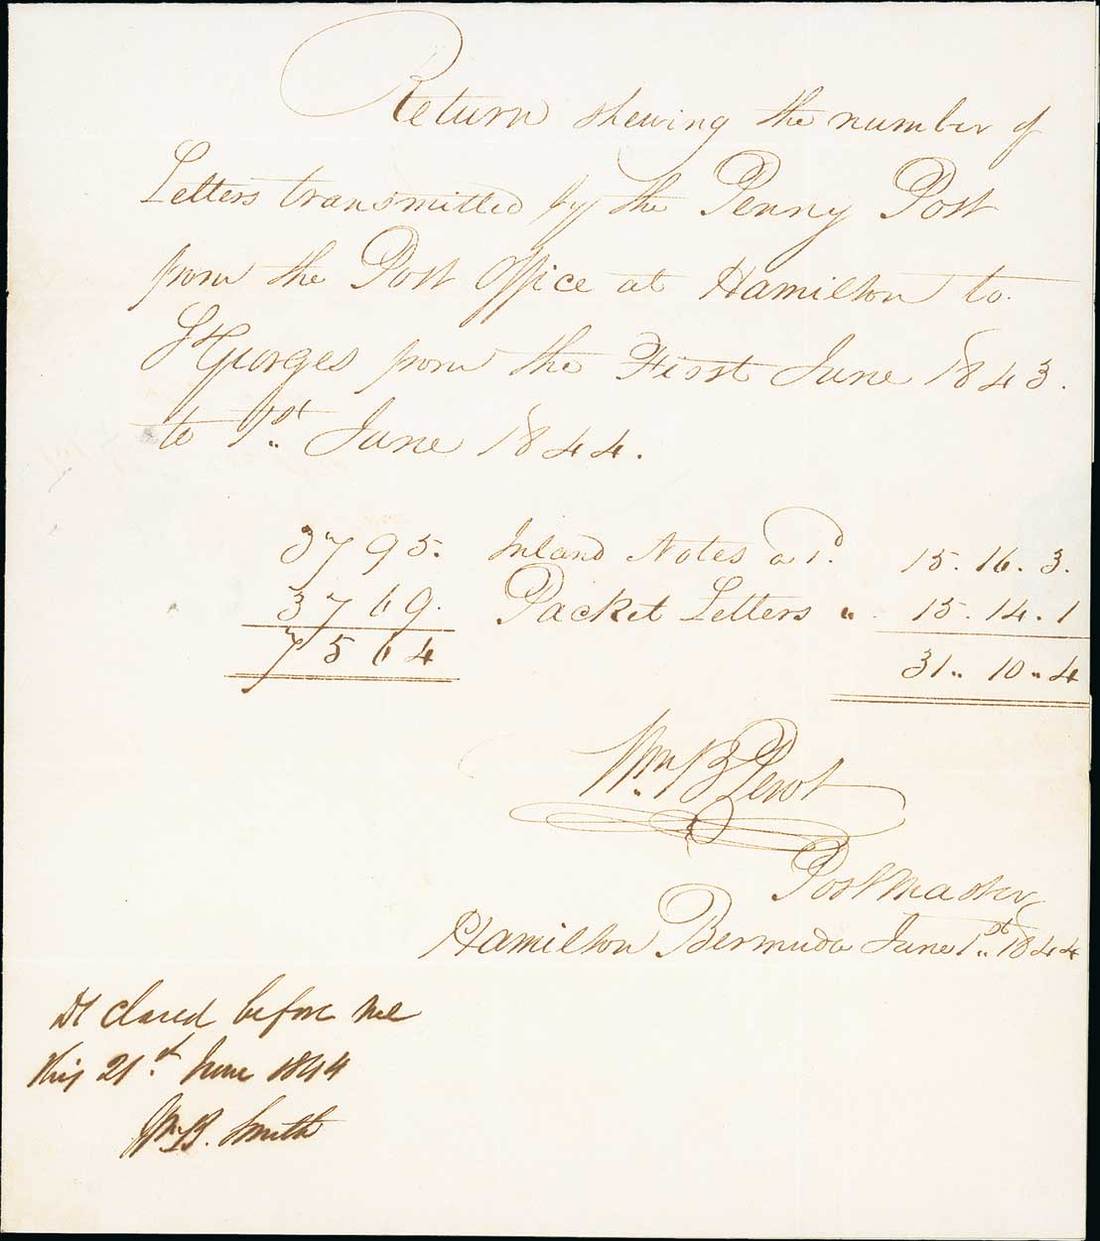 Return shewing the number of
Letters transmitted by the Penny Post
from the Post Office at Hamilton to
St Georges from the First June 1843.
to 1st June 1844.
3795. Inland Notes a 1d. 15.16.3.
3769. Packet Letters " 15.14.1
7564 31..10..4
Wm B Perot
Postmaster
Hamilton Bermuda June 1st 1844
Declared before me
this 21st June 1844
Wm B. Smith